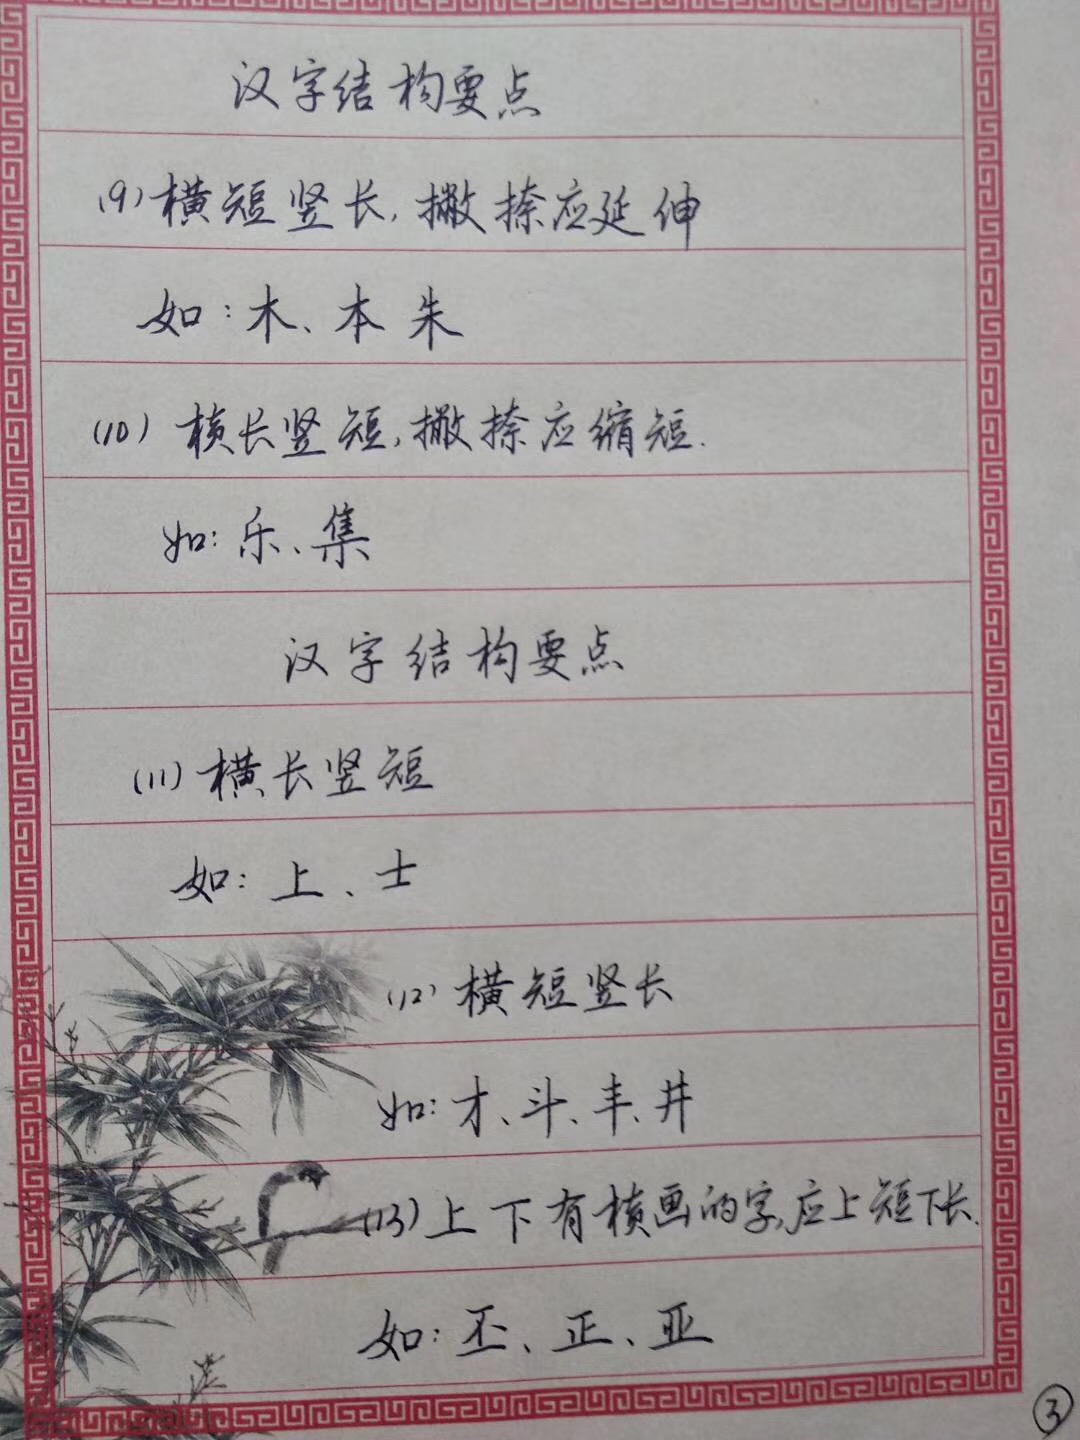 汉字结构要点
(9)横短竖长,撇捺应延伸
如:木、本朱
(10)横长竖短,撇捺应缩短.
如:乐、集
汉字结构要点
(11)横长竖短
如:上、士
(12)横短竖长
如:才、斗、丰、井
(13)上下有横画的字,应上短下长.
如:丕、正、亚
③